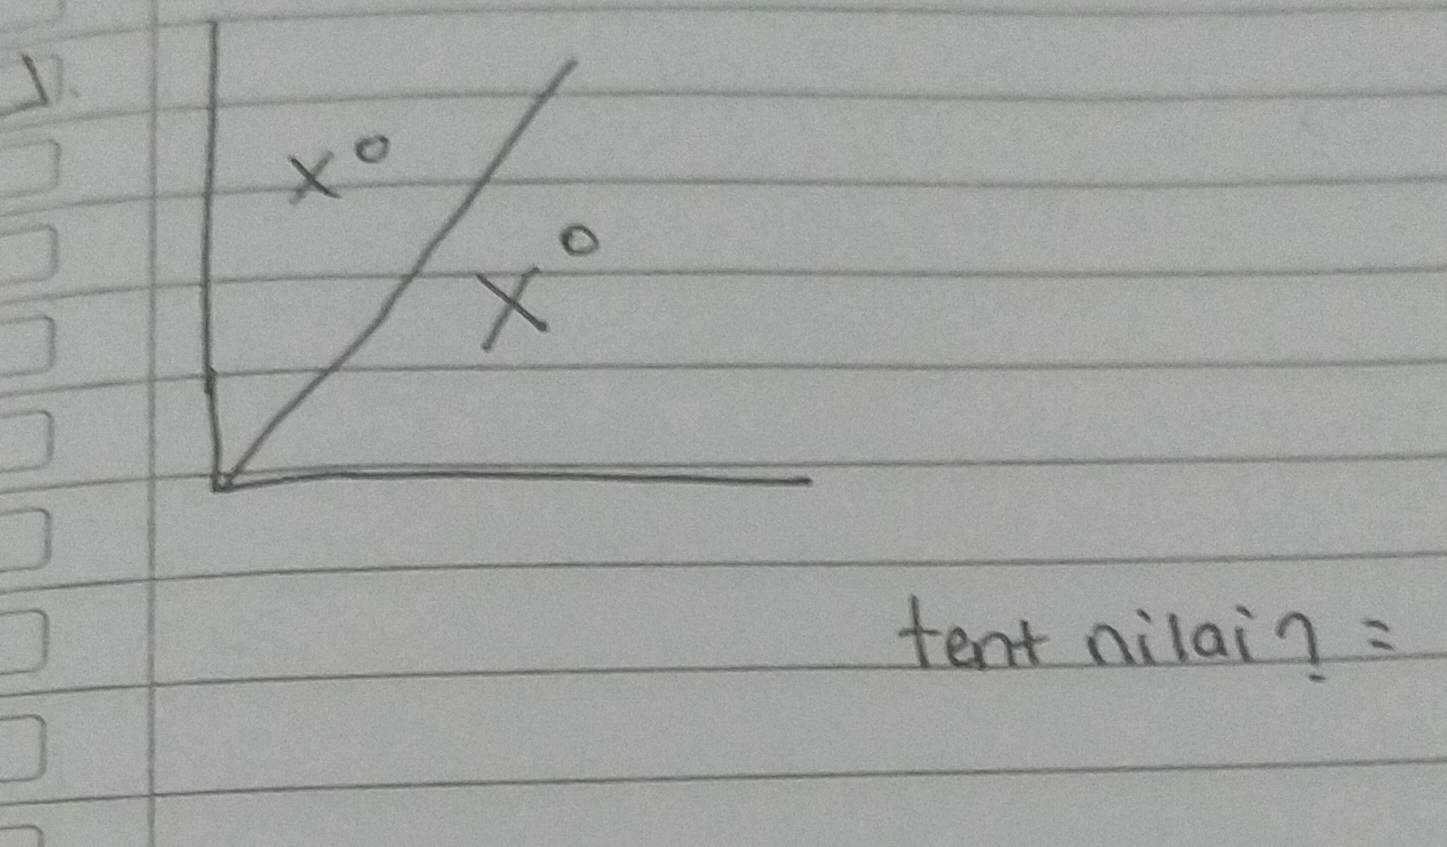 1.
x°
x°
tent nilai? =